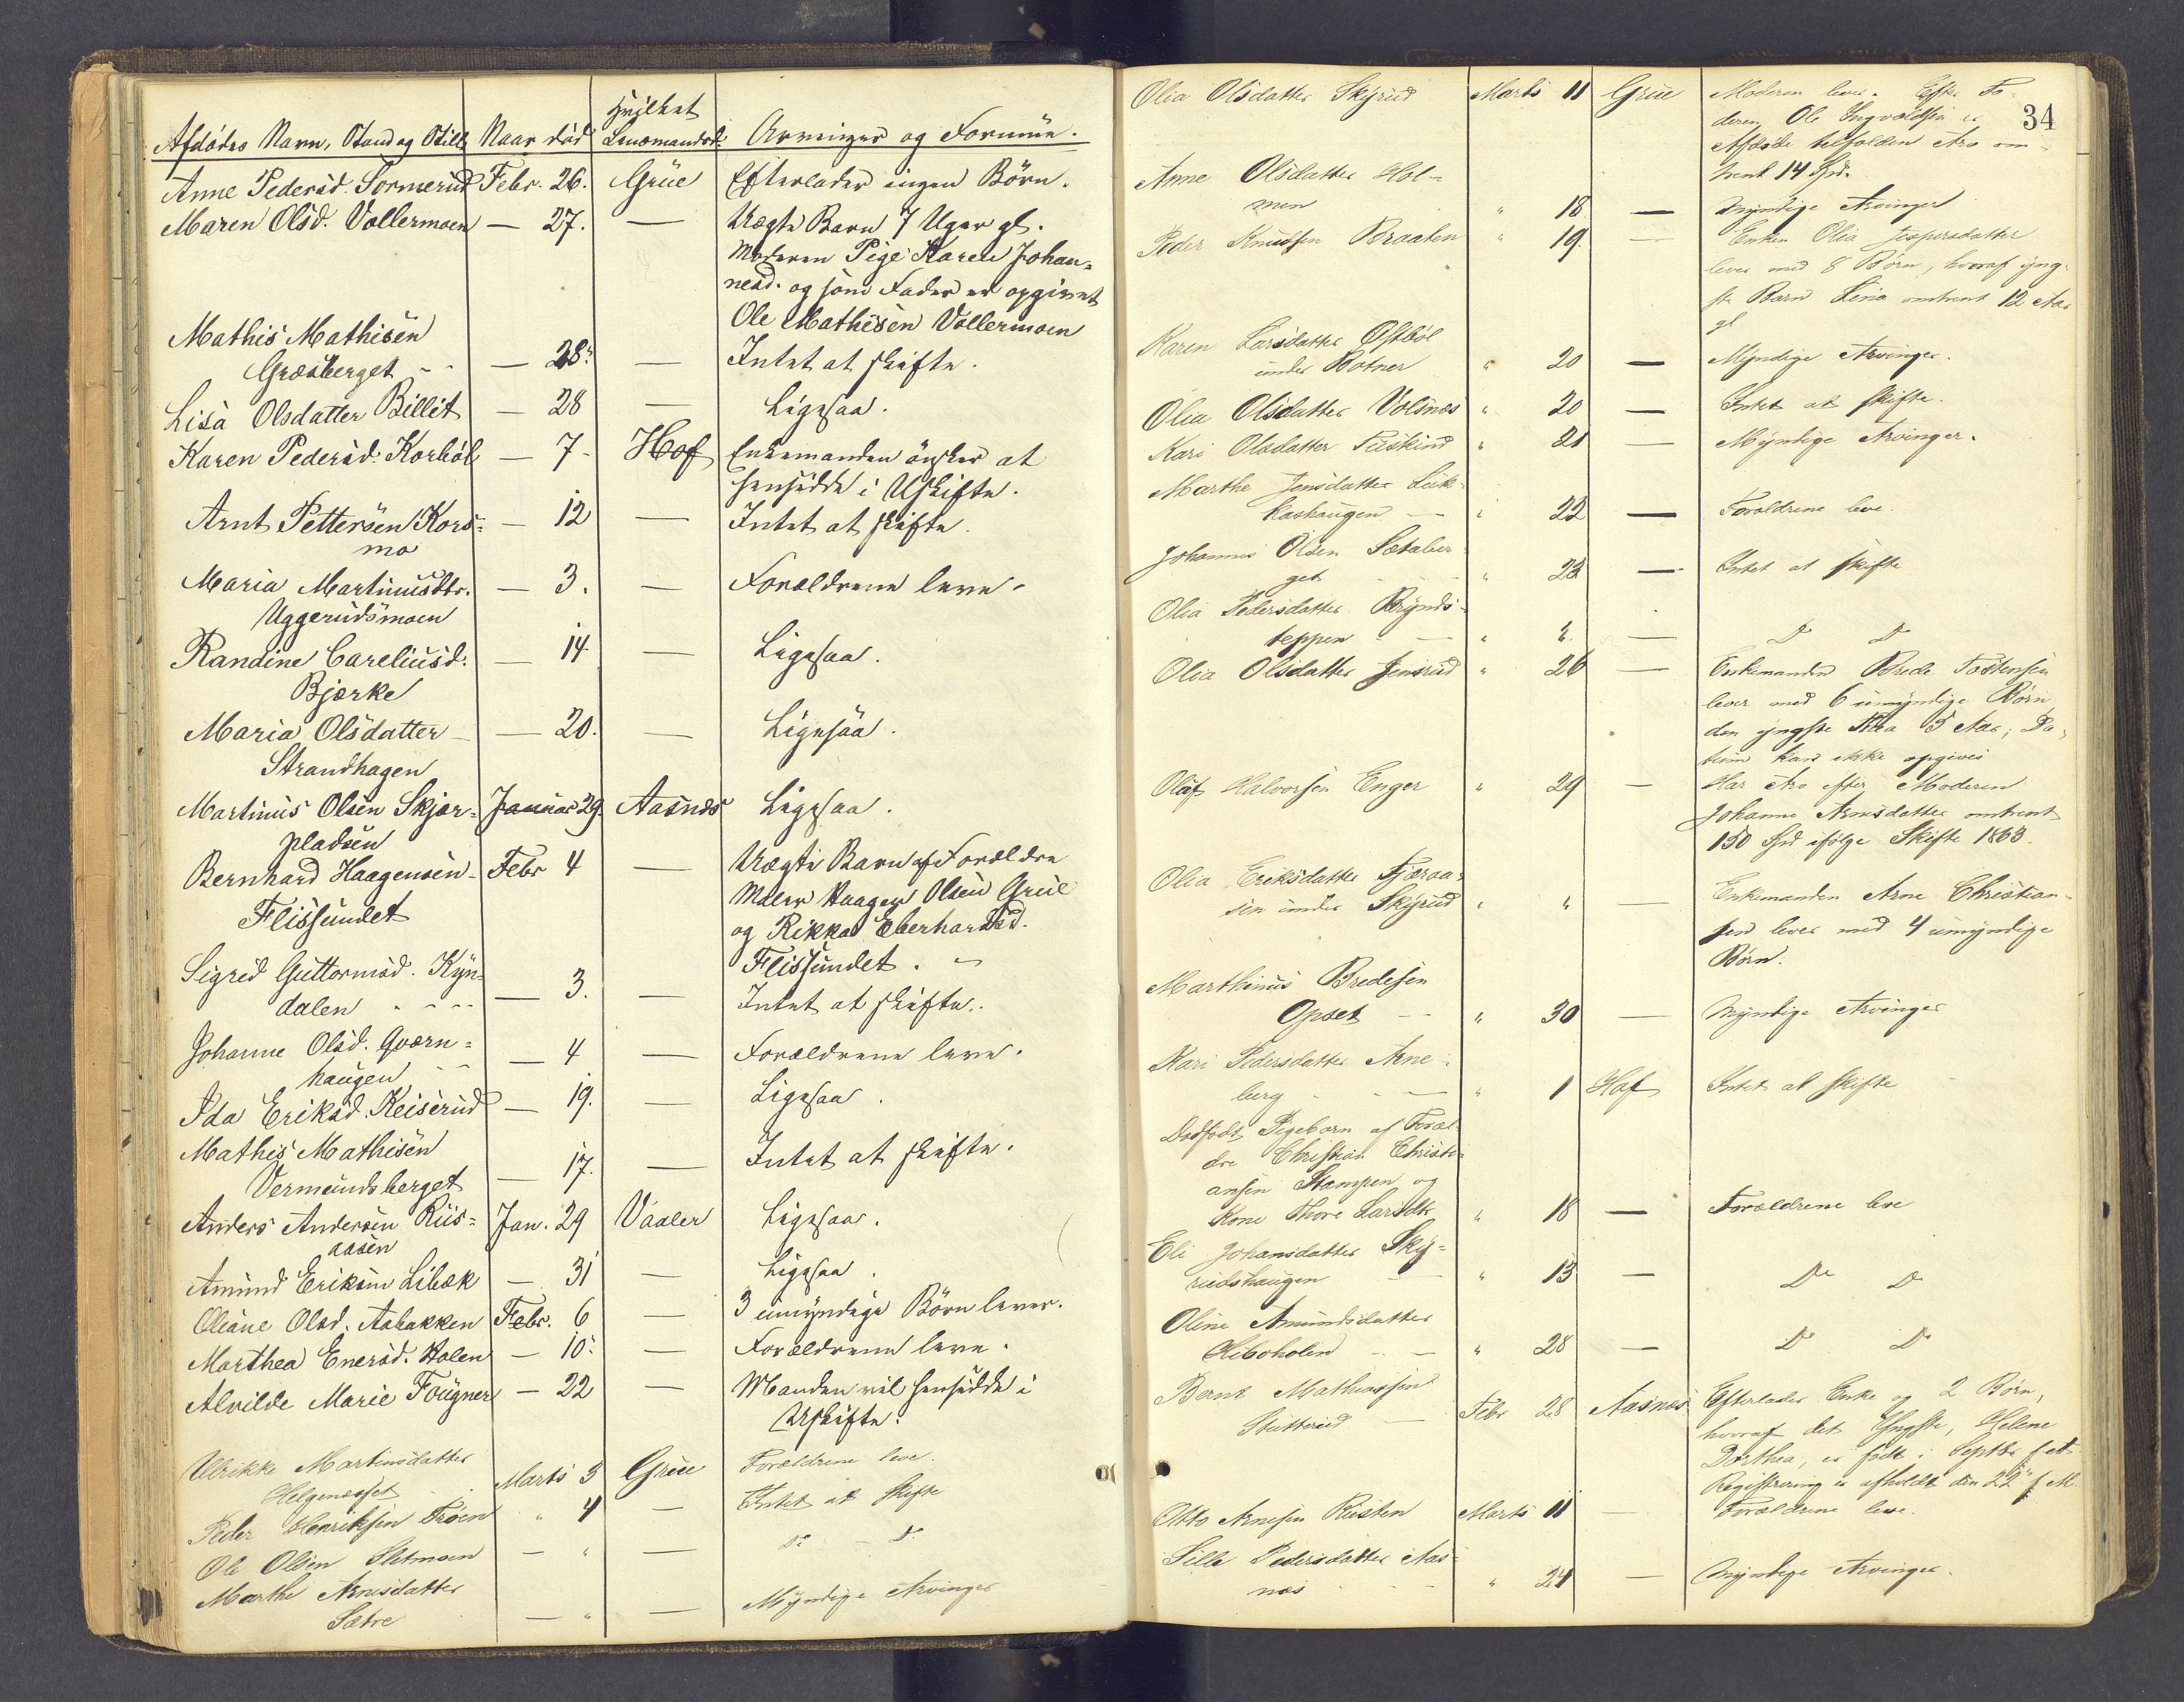 Afdødes Navn, Stand og Still. Naar død Hvilket Lensmandsd. Arvinger og Formue.
Anne Pedersd. Sormerud Febr. 26. Grue Efterlader ingen Børn.
Maren Olsd. Vollermoen — 27. — Uægte Barn 7 Uger gl.
Moderen Pige Karen Johan-
nesd. og som Fader er opgivet
Ole Mathisen Vollermoen
Mathis Mathisen
Græsberget — 28. — Intet at skifte.
Lisa Olsdatter Billit — 28 — Ligesaa.
Karen Pedersd. Korbøl — 7 Hof Enkemanden ønsker at
hensidde i Uskifte.
Arnt Pettersen Kors- — 12 — Intet at skifte.
mo
Maria Martinusdtr. — 3. — Forældrene leve.
Uggerudsmoen
Randine Careliusd. — 14 — Ligesaa.
Bjerke
Maria Olsdatter — 20. — Ligesaa.
Strandhagen
Martinus Olsen Skjær- Januar 29. Aasnes Ligesaa.
pladsen
Bernhard Haagensen Febr 4 — Uægte Barn af Forældre
Flissundet Maler Haagen Olsen Grue
og Rikka Eberhardsd.
Flissundet.
Sigrid Guttormsd. Kyn-
dalen — 3. — Intet at skifte.
Johanne Olsd. Qværn- — 4 — Forældrene leve.
haugen
Ida Eriksd. Keiserud — 19. — Ligesaa.
Mathis Mathisen
Vermundsberget — 17. — Intet at skifte.
Anders Andersen Riis- Jan. 29 Vaaler Ligesaa.
aasen
Amund Eriksen Libæk — 31 — Ligesaa.
Oleane Olsd. Aabakken Febr. 6 — 3 umyndige Børn lever.
Marthea Enersd. Holen — 10. — Forældrene leve.
Alvilde Marie Fougner — 22 — Manden vil hensidde i
Uskifte.
Ulrikke Martinsdatter
Helgenæsset Marts 3 Grue Forældrene leve.
Peder Henriksen Troen " 4 — Intet at skifte
Ole Olsen Sletmoen — " — Do — Do
Marthe Arnesdatter
Sætre — " — Myndige Arvinger
34
Olia Olsdatter Skyrud Marts 11 Grue Moderen lever. Efter Fa-
deren Ole Ingvoldsen er
Afdøde tilfalden Arv om-
trent 14 Spd.
Anne Olsdatter Hol-
men " 18 — Myndige Arvinger
Peder Knudsen Braaten " 19 — Enken Olia Jespersdatter
lever med 8 Børn, hvoraf yng-
ste Barn Lina omtrent 12 Aar
gl
Karen Larsdatter Østbøl
under Rotner " 20 — Myndige Arvinger.
Olia Olsdatter Volsnes " 20 — Intet at skifte.
Kari Olsdatter Puskind " 21 — Myndige Arvinger.
Marthe Jensdatter Luk-
kashaugen — " 22 — Forældrene leve.
Johannes Olsen Sætaber-
get " 23 — Intet at skifte
Olia Pedersdatter Brynds-
teppen — " " — Do Do
Olia Olsdatter Jensrud " 26 — Enkemanden Brede Tostensen
lever med 6 umyndige Børn
den yngste 5 Aar; Da-
tum kan ikke opgives
Olaf Halvorsen Enger " 29 — Har Arv efter Moderen
Johanne Arnesdatter omtrent
150 Spd ifølge Skifte 1863.
Olia Eriksdatter Fjæraa-
sen under Skyrud " " — Enkemanden Arne Christian-
sen lever med 4 umyndige
Børn.
Marthinus Bredesen
Opset — " 30 — Myndige Arvinger
Kari Pedersdatter Arne-
berg " 1 Hof Intet at skifte
Dødfødt Pigebarn af Foræl-
dre Christian Christi-
ansen Stampen og
Kone Thore Larsdtr " 18 — Forældrene leve
Eli Johansdatter Sky-
rudshaugen — " 13 — Do Do
Oline Amundsdatter
Kiboholen — " 28 — Do Do
Bernt Mathiassen
Stutterud — Febr 28 Aasnes Efterlader Enke og 2 Børn,
hvoraf det Yngste, Helene
Dorthea, er født i Septbr f. A.
Registrering er afholdt den 22 f. M.
Otto Arnesen Risten Marts 11 — Forældrene leve.
Sille Pedersdatter Aas-
nes " 24 — Myndige Arvinger.